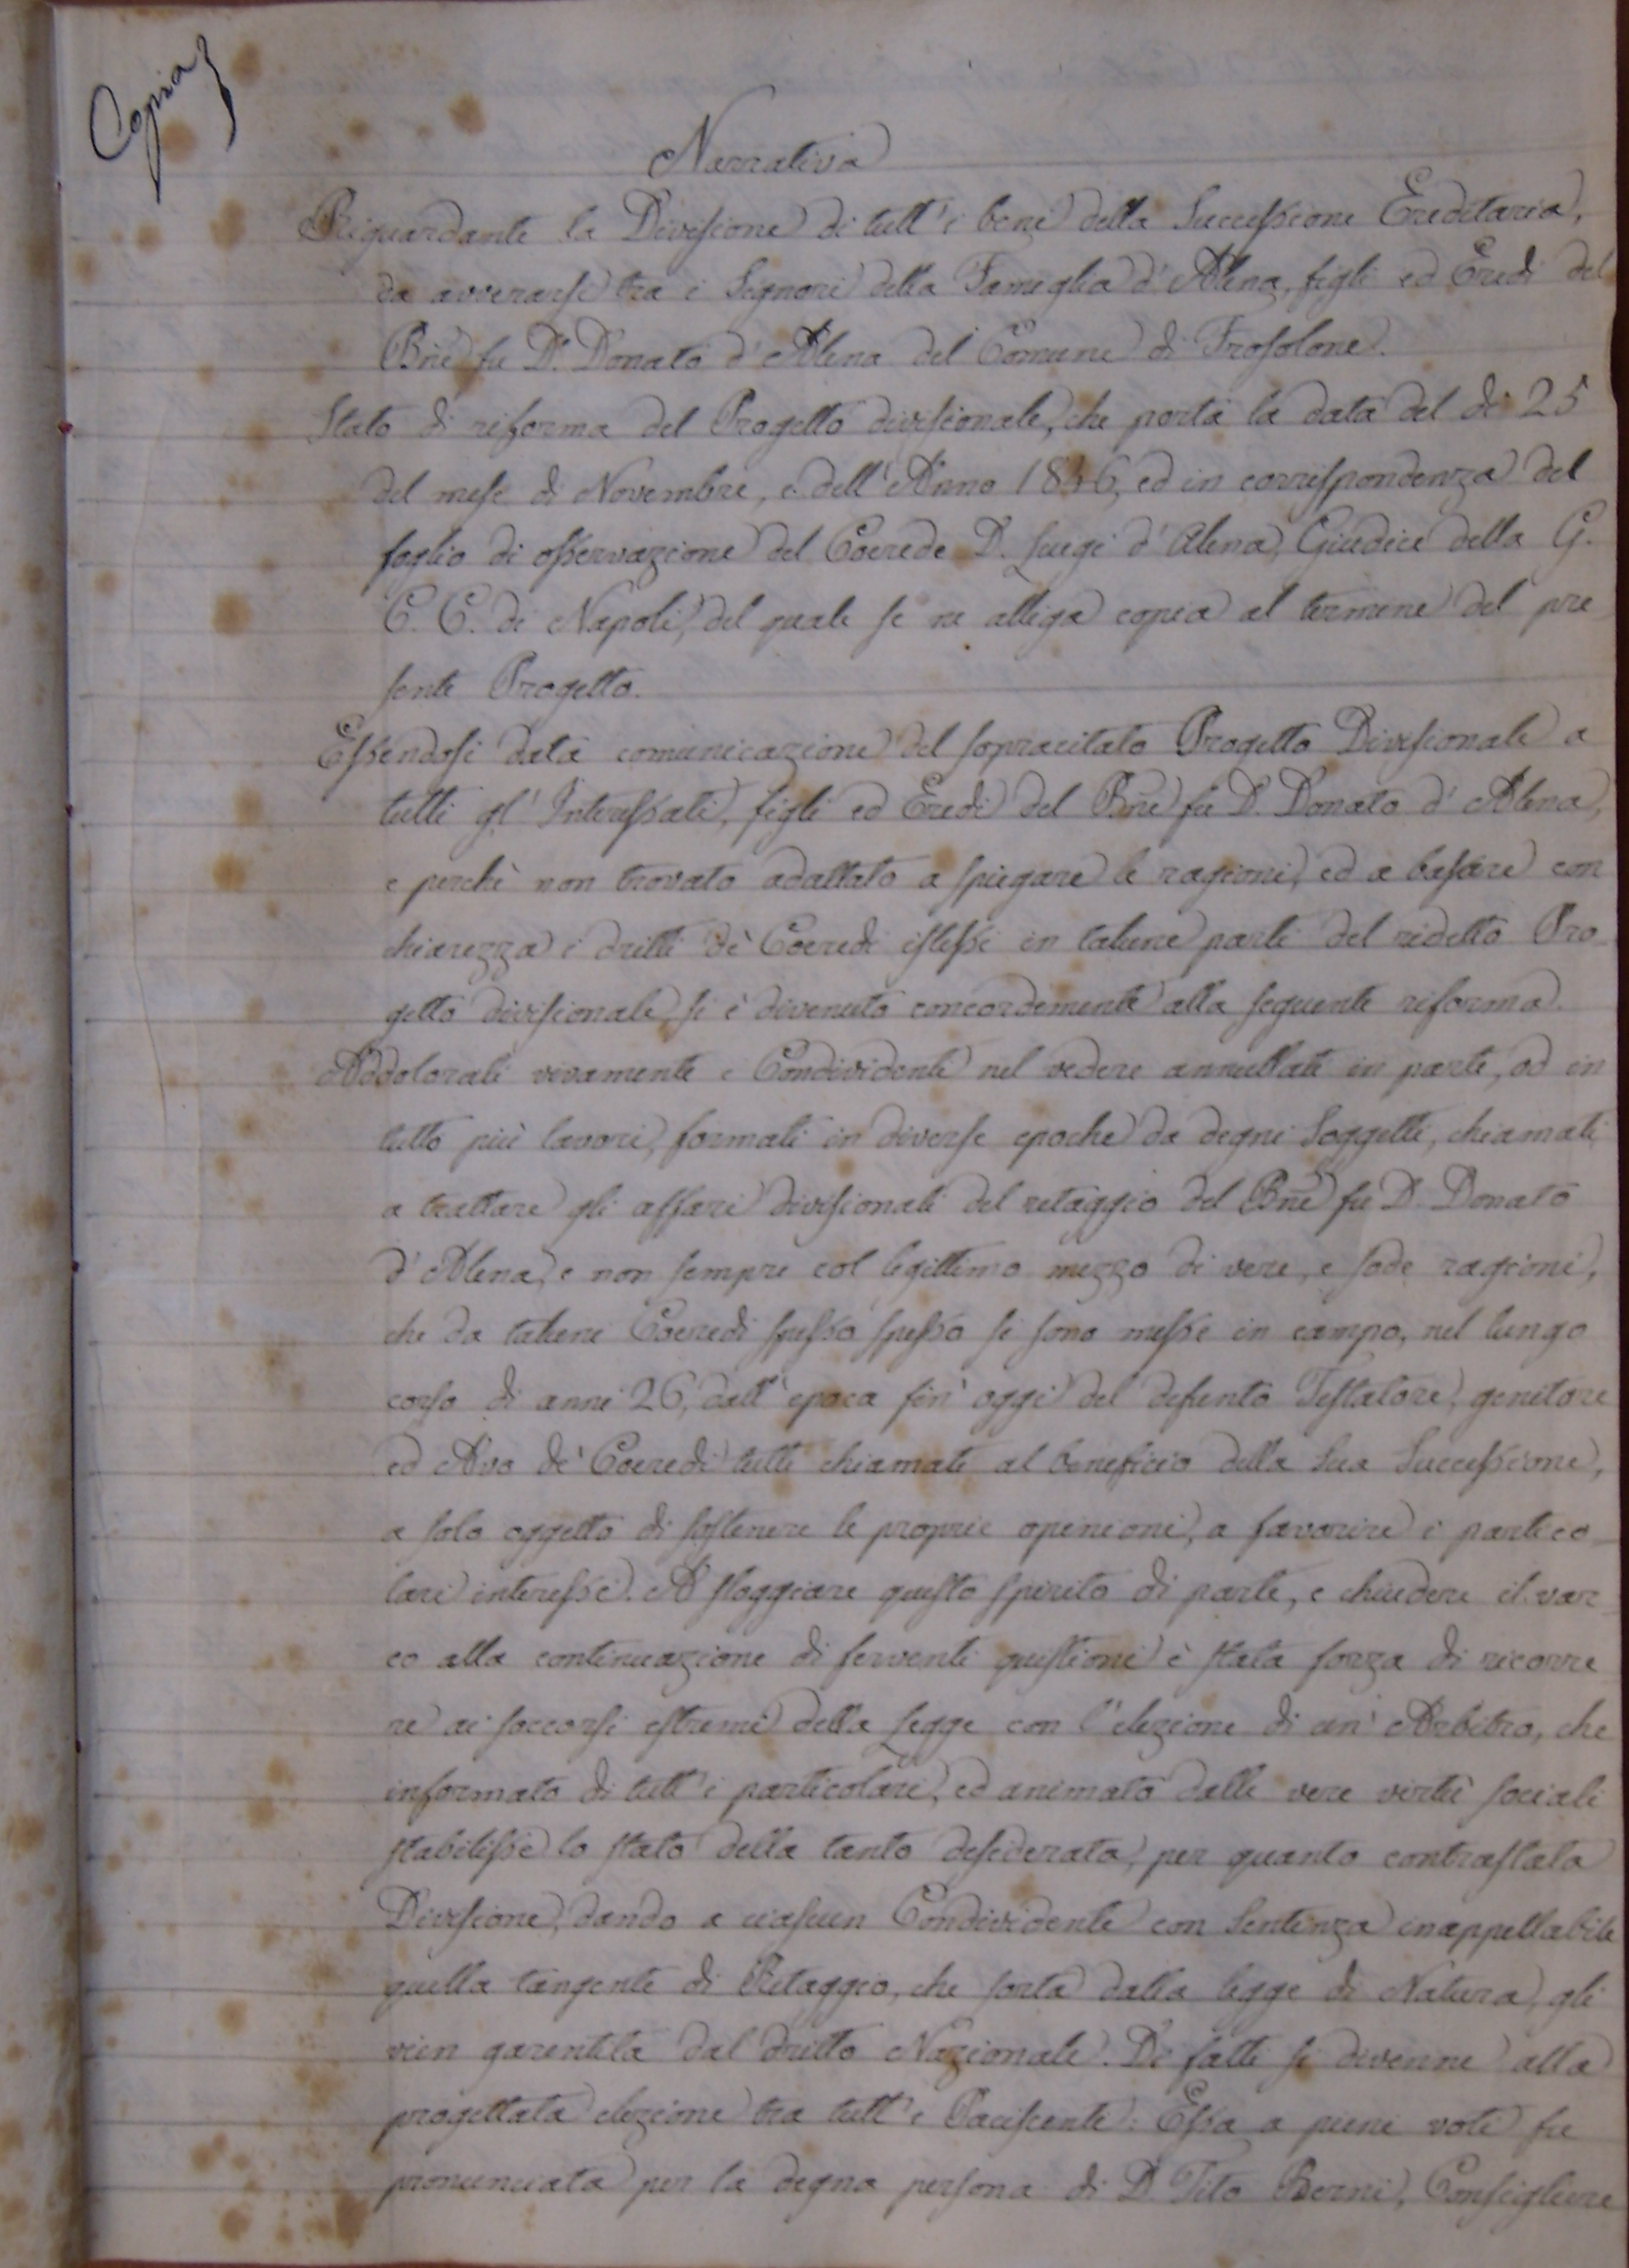 Copia
Narrativa
Riguardante la Divisione di tutt'i beni della Successione Ereditaria,
da avverarsi tra i Signori della Famiglia d'Alena, figli ed Eredi del
Bñe fu D. Donato d'Alena del Comune di Frosolone.
Stato di riforma del Progetto divisionale, che porta la data del dì 25
del mese di Novembre, e dell'Anno 1846, ed in corrispondenza del
foglio di osservazione del Coerede D. Luigi d'Alena, Giudice della G.
C. C. di Napoli, del quale se ne alliga copia al termine del pre
sente Progetto.
Essendosi data comunicazione del sopracitato Progetto Divisionale a
tutti gl'Interessati, figli ed Eredi del Bñe fu D. Donato d'Alena,
e perchè non trovato adattato a spiegare le ragioni, ed a basare con
chiarezza i dritti de' Coeredi istessi in talune parti del ridetto Pro
getto divisionale, si è divenuto concordemente alla seguente riforma.
Addolorati vivamente i Condividenti nel vedere annullati in parte, od in
tutto più lavori, formati in diverse epoche da degni Soggetti, chiamati
a trattare gli affari divisionali del retaggio del Bñe fu D. Donato
d'Alena, e non sempre col legittimo mezzo di vere, e sode ragioni,
che da taluni Coeredi spesso spesso si sono messe in campo, nel lungo
corso di anni 26, dall'epoca fin'oggi del defunto Testatore, genitore
ed Avo de' Coeredi tutti chiamati al beneficio della Sua Successione,
a solo oggetto di sostenere le proprie opinioni, a favorire i partico-
lari interessi. A sloggiare questo spirito di parte, e chiudere il var-
co alla continuazione di ferventi quistioni è stata forza di ricorre
re ai soccorsi estremi della Legge con l'elezione di un'Arbitro, che
informato di tutt'i particolari, ed animato dalle vere virtù sociali
stabilisse lo stato della tanto desiderata, per quanto contrastata
Divisione, dando a ciascun Condividente con Sentenza inappellabile
quella tangente di Retaggio, che sorta dalla legge di Natura, gli
vien garentita dal dritto Nazionale. Di fatti si divenne alla
progettata elezione tra tutt'i Paciscenti. Essa a pieni voti fu
pronunciata per la degna persona di D. Tito Berni, Consigliere